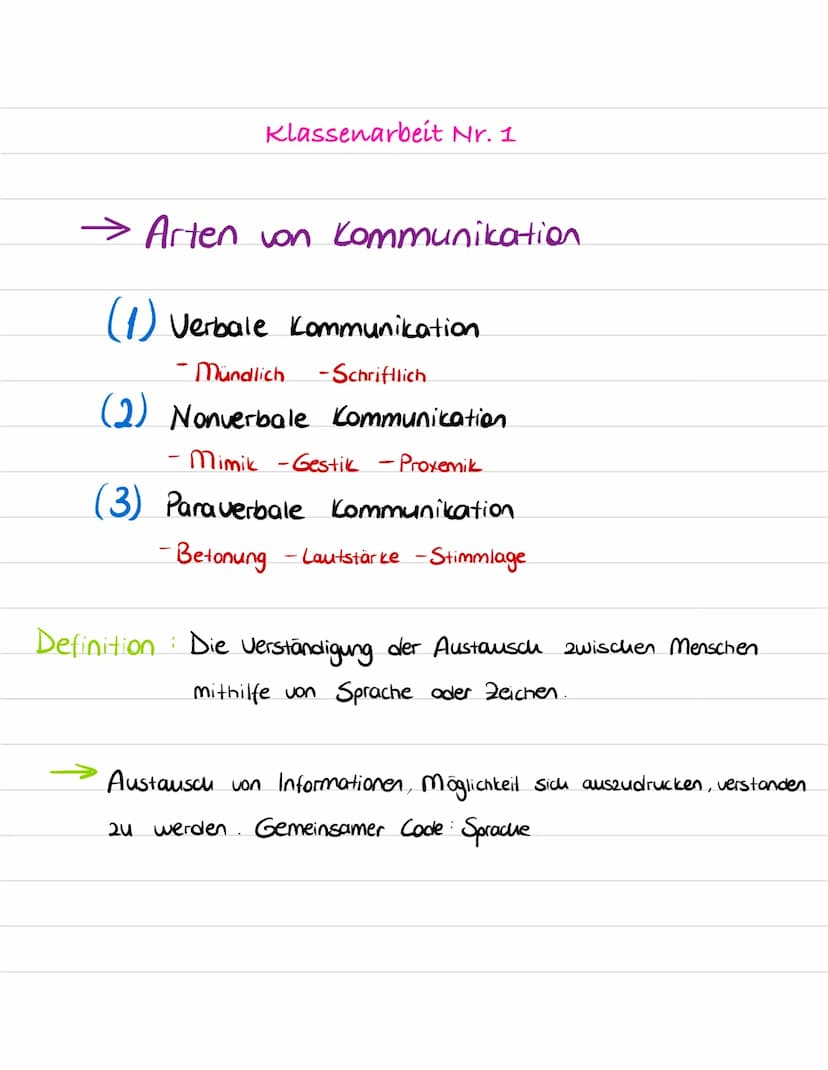 Klassenarbeit Nr. 1
→ Arten von Kommunikation
(1) Verbale Kommunikation
- Mündlich - Schriftlich
(2) Nonverbale Kommunikation
- Mimik - Gestik - Proxemik
(3) Paraverbale Kommunikation
- Betonung - Lautstärke - Stimmlage
Definition : Die Verständigung der Austausch zwischen Menschen
mithilfe von Sprache oder Zeichen.
→ Austausch von Informationen, Möglichkeit sich auszudrucken, verstanden
zu werden. Gemeinsamer Code : Sprache